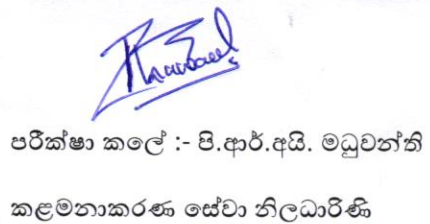 පරීක්ෂා කලේ :- පි.ආර්.අයි. මධුවන්ති
කළමනාකරණ සේවා නිලධාරිණි